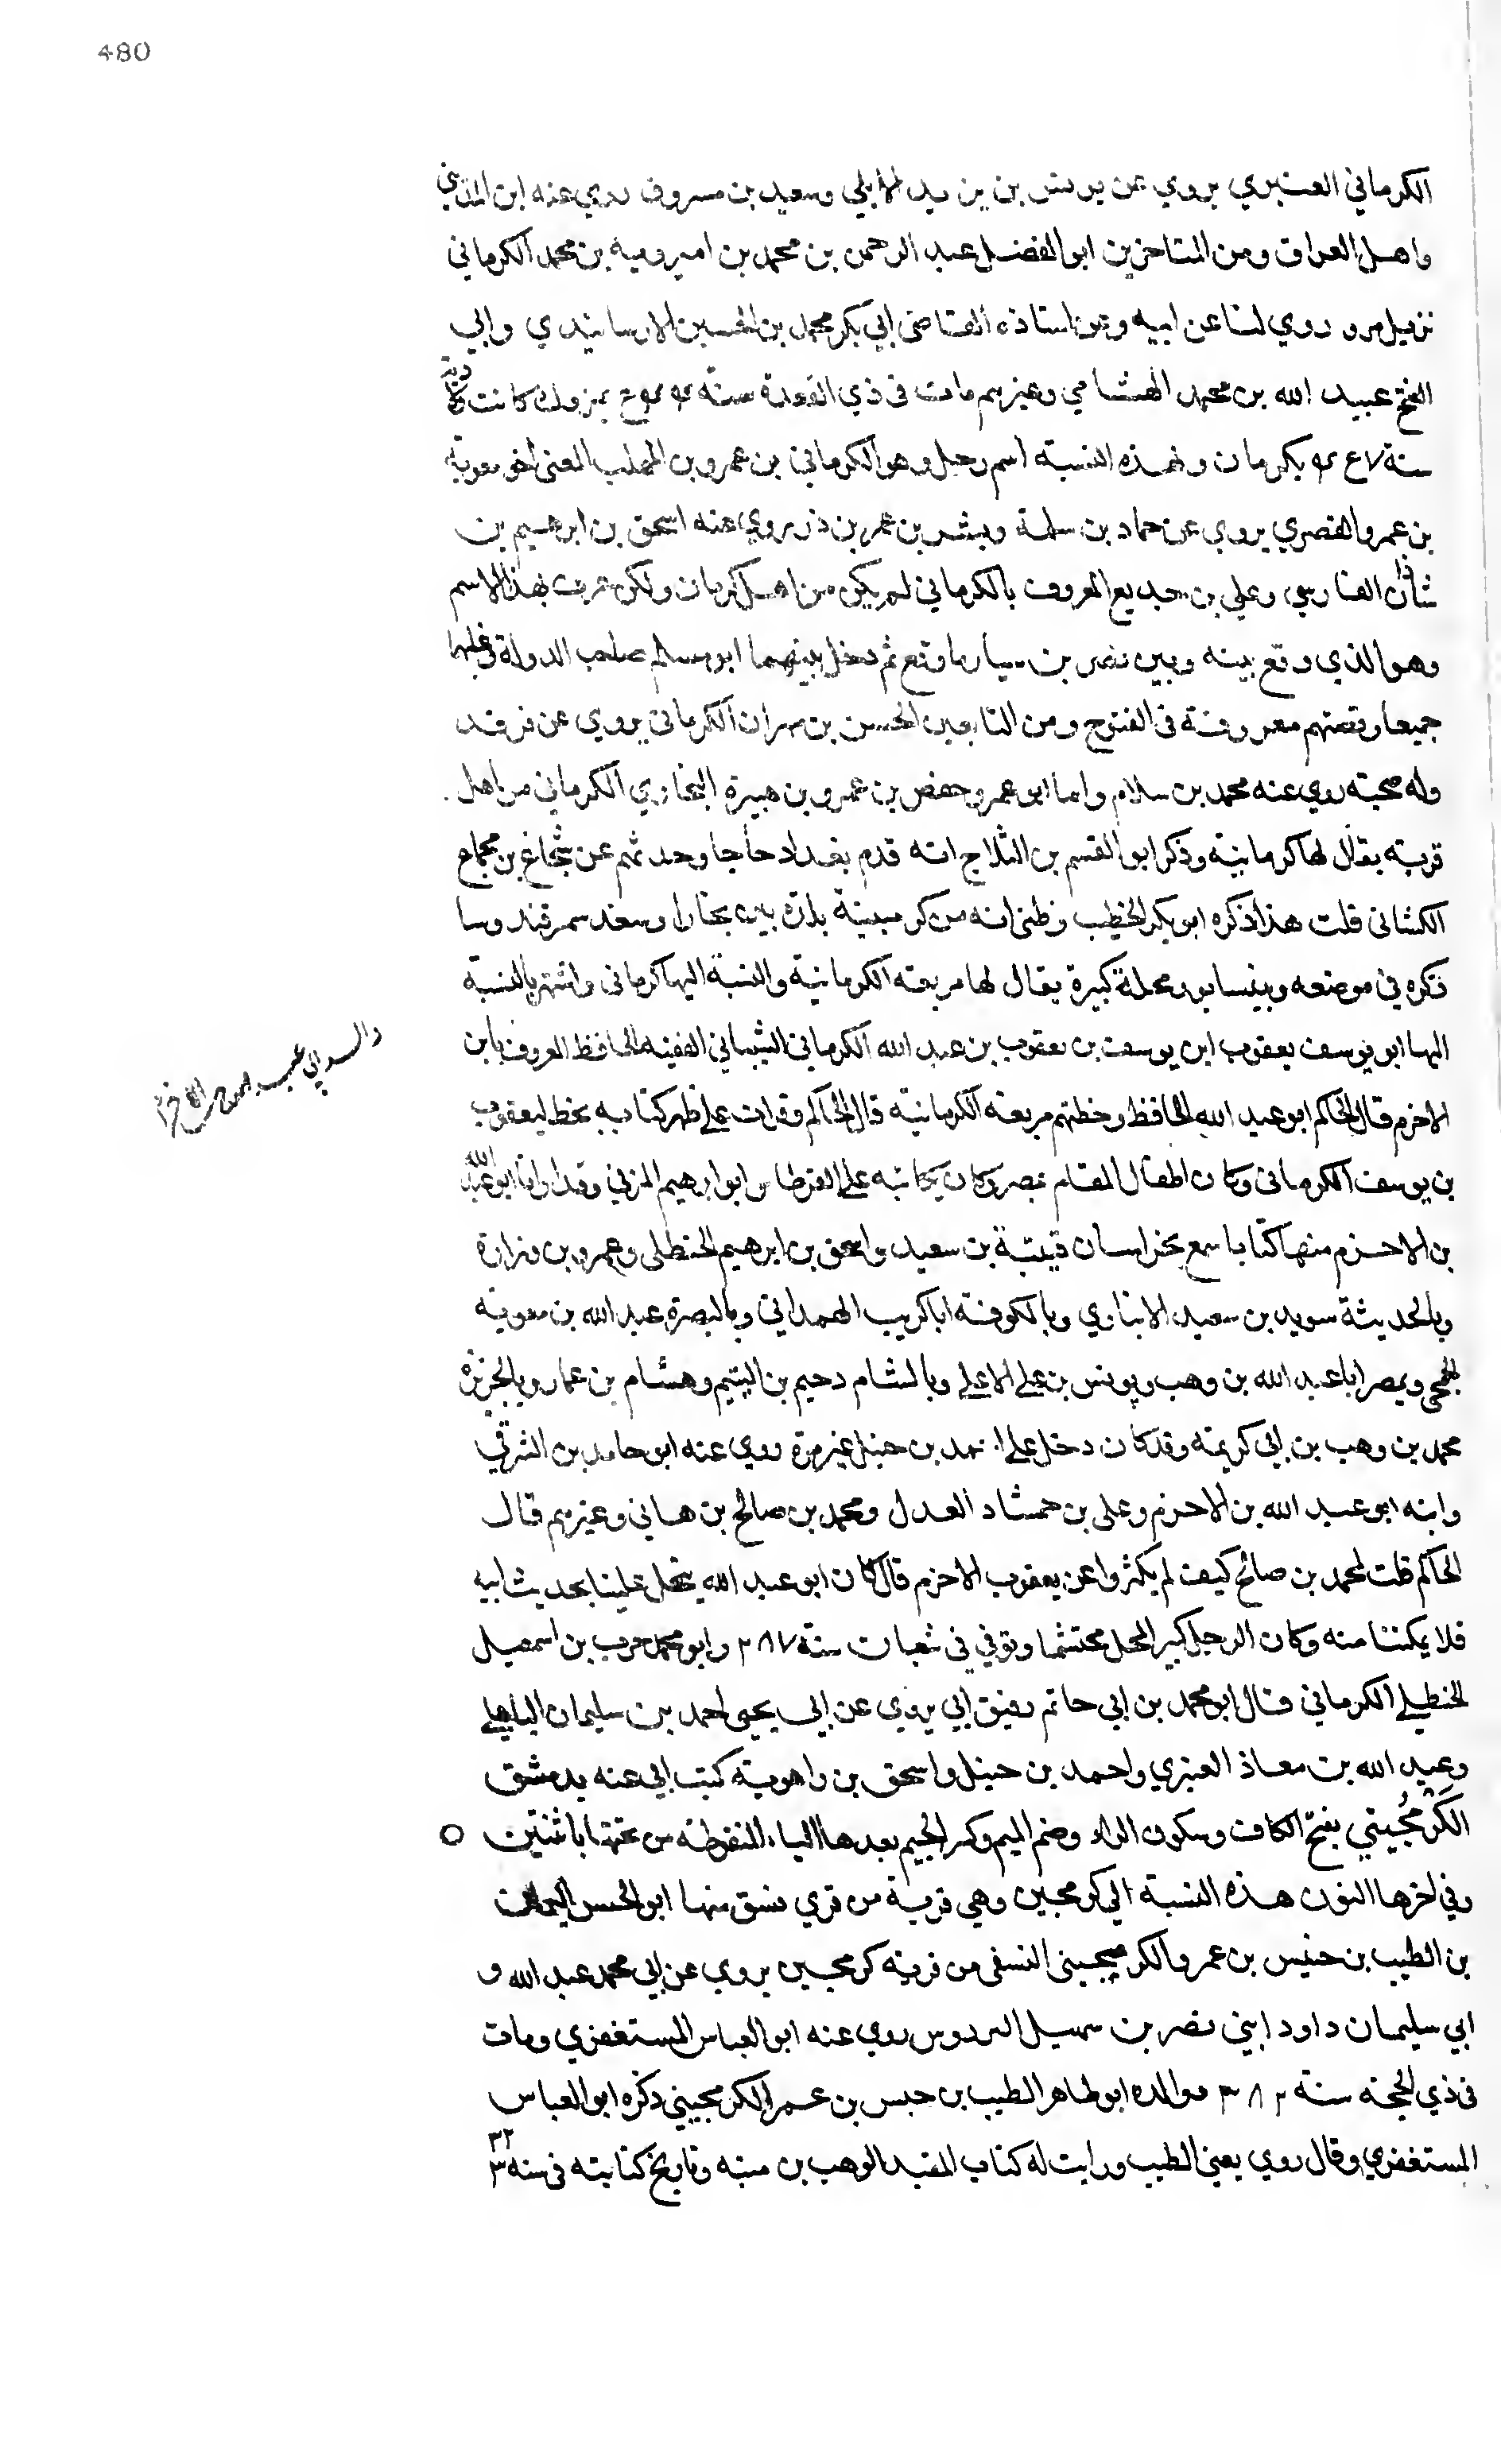 480
الكرماني العنبري يروي عن يونس بن يزيد الايلي وسعيد بن مسروق روي عنه ابن المديني
واهل العراق ومن المتاخرين ابو الفضل عبد الرحمن بن محمد بن اميرويه بن محمد الكرماني
نزيل مرو روي لنا عن ابيه وعن استاذه القاضي ابي بكر محمد بن الحسين الارسابندي وابي
الفتح عبيد الله بن محمد الهشامي وغيرهم مات في ذي القعدة سنة بمرو كانت ولادته
سنة بكرمان ولهذه النسبة اسم رجل وهو الكرماني بن عمرو بن المهلب المعني اخو معوية
بن عمرو القصري يروي عن حماد بن سلمة وبشر بن عمر بن ذر روي عنه اسحق بن ابرهيم بن
شاذان الفارسي وعلي بن جديع المعروف بالكرماني لم يكن من اهل كرمان ولكن عرف بهذا الاسم
وهو الذي وقع بينه وبين نصر بن سيار ما وقع ثم دخل بينهما ابو مسلم صاحب الدولة فغلبهما
جميعا وقصتهم معروفة في الفتوح ومن التابعين الحسن بن مهران الكرماني يروي عن فرقد
وله صحبة روي عنه محمد بن سلام واما ابو عمرو حفص بن عمرو بن هبيرة البخاري الكرماني من اهل
قرية يقال لها كرمانية وذكر ابو القسم بن الثلاج انه قدم بغداد حاجا وحدثهم عن شجاع بن مجاع
الكشاني قلت هذا ذكره ابو بكر الخطيب وظني انه من كرمينية بلدة بين بخارا وسغد سمرقند وسا
ذكره في موضعه وبنيسابور محلة كبيرة يقال لها مربعة الكرمانية والنسبة اليها كرماني واشتهر بالنسبة
اليها ابو يوسف يعقوب ابن يوسف بن يعقوب بن عبد الله الكرماني الشيباني الفقيه الحافظ المعروف بابن
والد ابي عبد الله بن الاخرم
الاخرم قال الحاكم ابو عبد الله الحافظ وخطتهم مربعة الكرمانية قال الحاكم وقرات على ظهر كتابه بخط ليعقوب
بن يوسف الكرماني وكان اطال المقام بمصر وكان يكاتبه على القرطاس ابو ابرهيم المزني وقد ارانا ابو عبد الله
بن الاخرم منها كتابا سمع بخراسان قتيبة بن سعيد واسحق بن ابرهيم الحنظلي وعمرو بن زرارة
وبالحديثة سويد بن سعيد الانباري وبالكوفة ابا كريب الهمداني وبالبصرة عبد الله بن معوية
الجمحي وبمصر ابا عبد الله بن وهب ويونس بن عبد الاعلي وبالشام دحيم بن اليتيم وهشام بن عمار وبالجزيرة
محمد بن وهب بن ابي كريمة وقد كان دخل على احمد بن حنبل غير مرة روي عنه ابو حامد بن الشرقي
وابنه ابو عبد الله بن الاخرم وعلى بن حمشاد العدل ومحمد بن صالح بن هاني وغيرهم قال
الحاكم قلت لمحمد بن صالح كيف لم يكثروا عن يعقوب الاخرم قال كان ابو عبد الله يبخل علينا بحديث ابيه
فلا يمكننا منه وكان الرجل كبير المحل محتشما وتوفي في شعبان سنة ٢٨٧ وابو محمد حرب بن اسمعيل
الحنظلي الكرماني قال ابو محمد بن ابي حاتم رفيق ابي يروي عن ابي يحيى احمد بن سليمان الباهلي
وعبيد الله بن معاذ العنبري واحمد بن حنبل واسحق بن راهوية كتب ابي عنه بدمشق
الكَرْمُجيني بفتح الكاف وسكون الراء وضم الميم وكسر الجيم بعدها الياء المنقوطة من تحتها باثنتين ○
وفي اخرها النون هذه النسبة الي كرمجين وهي قرية من قري نسف منها ابو الحسن اليمان
بن الطيب بن حنيس بن عمر والكرمجيني النسفي من قرية كرمجين يروي عن ابي محمد عبد الله و
ابي سليمان داود ابني نصر بن سهيل البردوس روي عنه ابو العباس المستغفري ومات
في ذي الحجة سنة ٣٨٢ ووالده ابو طاهر الطيب بن حبس بن عمر الكرمجيني ذكره ابو العباس
المستغفري وقال روي يعني الطيب ورايت له كتاب المقيد لوهب بن منبه وتاريخ كتابته في سنة ٣٣٢